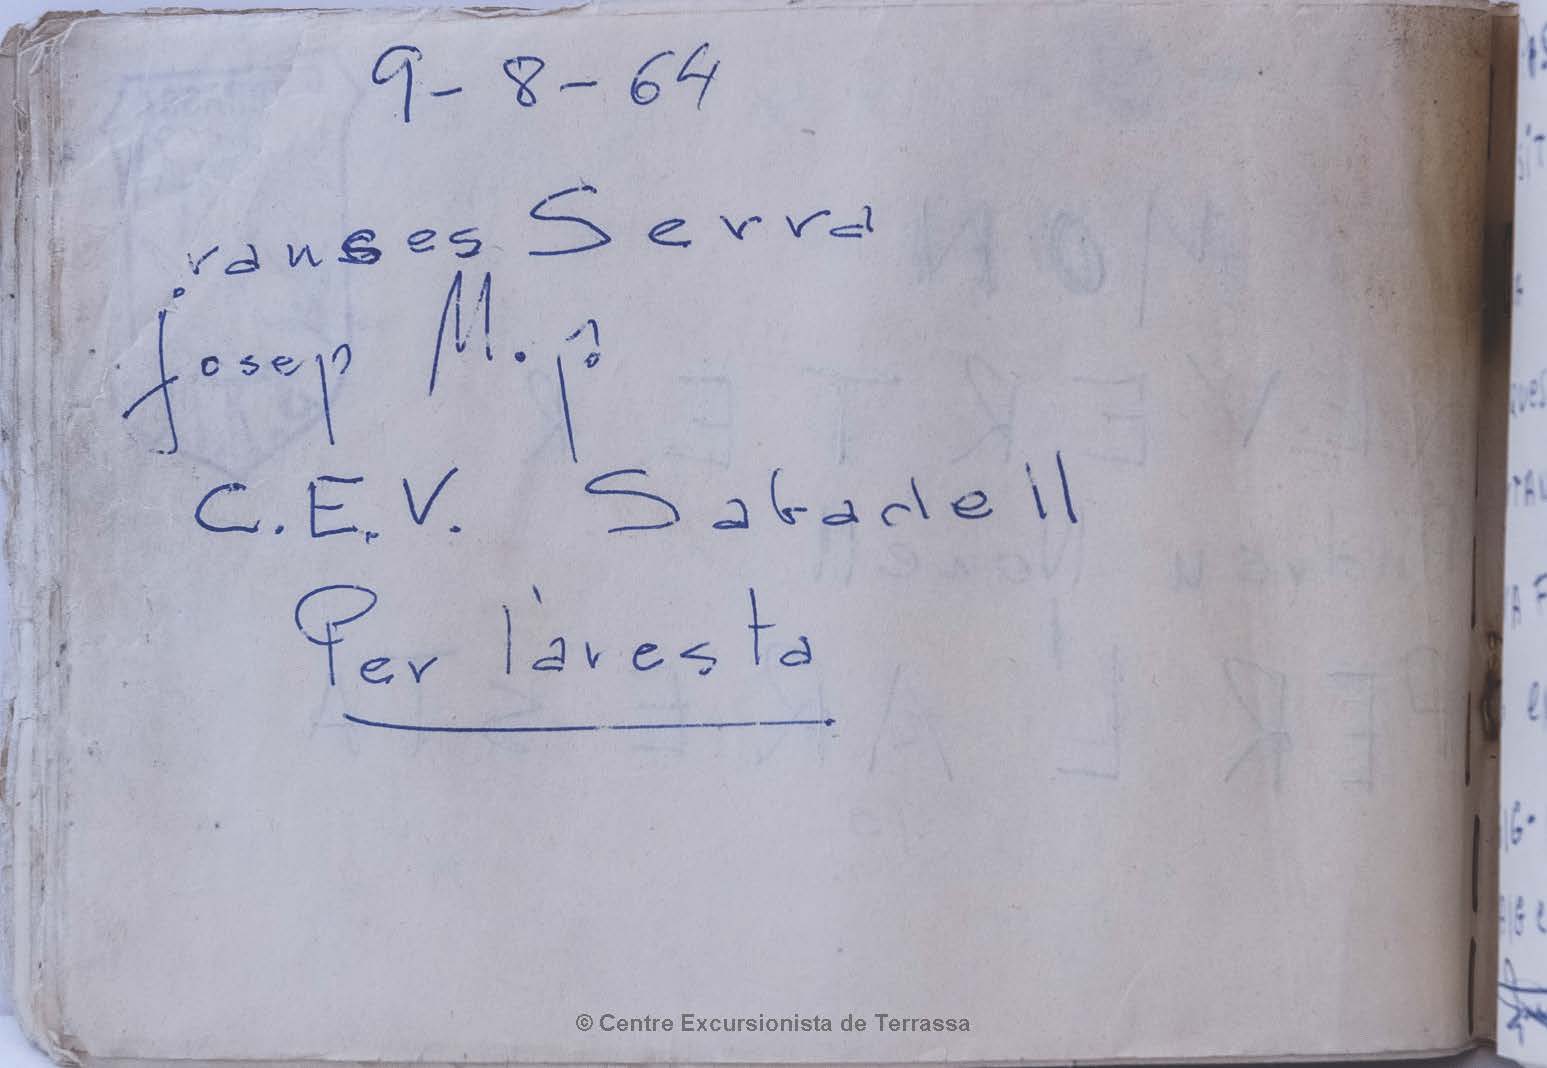 9-8-64
Franses Serra
Josep M. p.
C.E.V. Sabadell
Per l'aresta
© Centre Excursionista de Terrassa